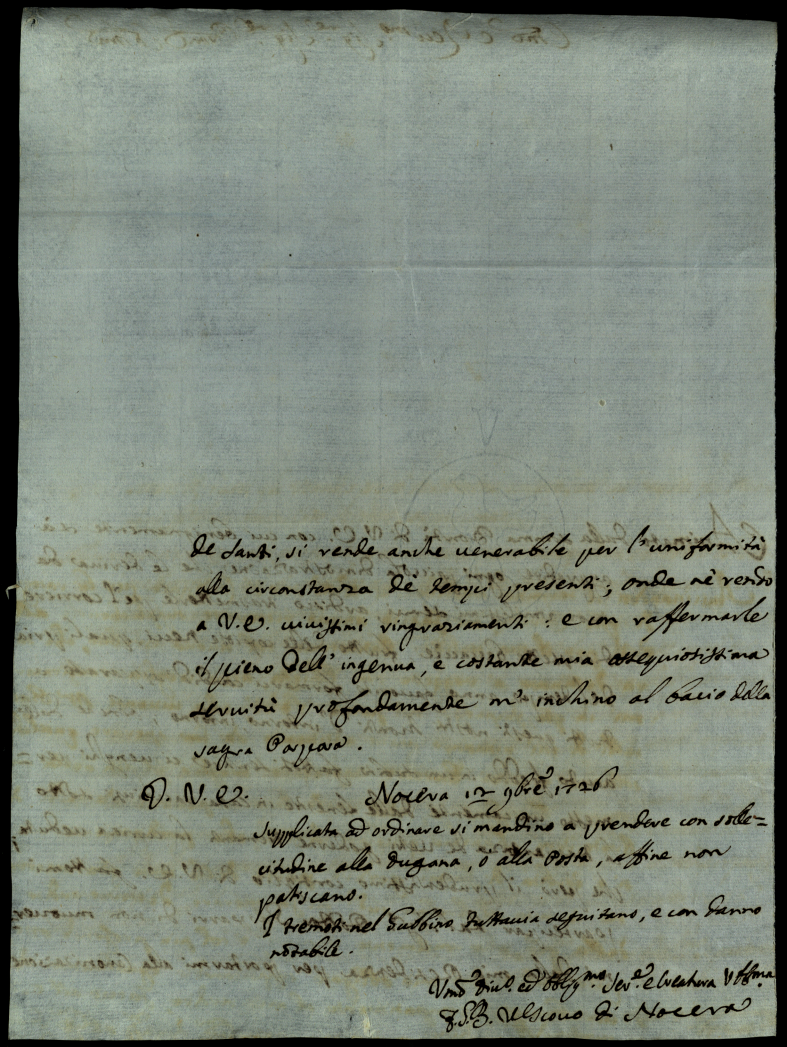 de Santi, si rende anche venerabile per l'uniformità
alla circonstanza dè tempi presenti; onde nè rendo
a V.E. vivissimi ringraziamenti: e con raffermarle
il pieno dell'ingenua, e costante mia ossequiosissima
servitù profondamente m'inchino al bacio della
sagra Porpora.
D. V. E. Nocera 12 9bre 1726
Supplicata ad ordinare si mandino a prendere con solle=
citudine alla Dugana, ò alla Posta, affine non
patiscano.
I tremoti nel Gubbino tuttavia seguitano, e con danno
notabile.
Umo Divo. ed Obblgmo Serre. e Creatura
Vescovo di Nocera